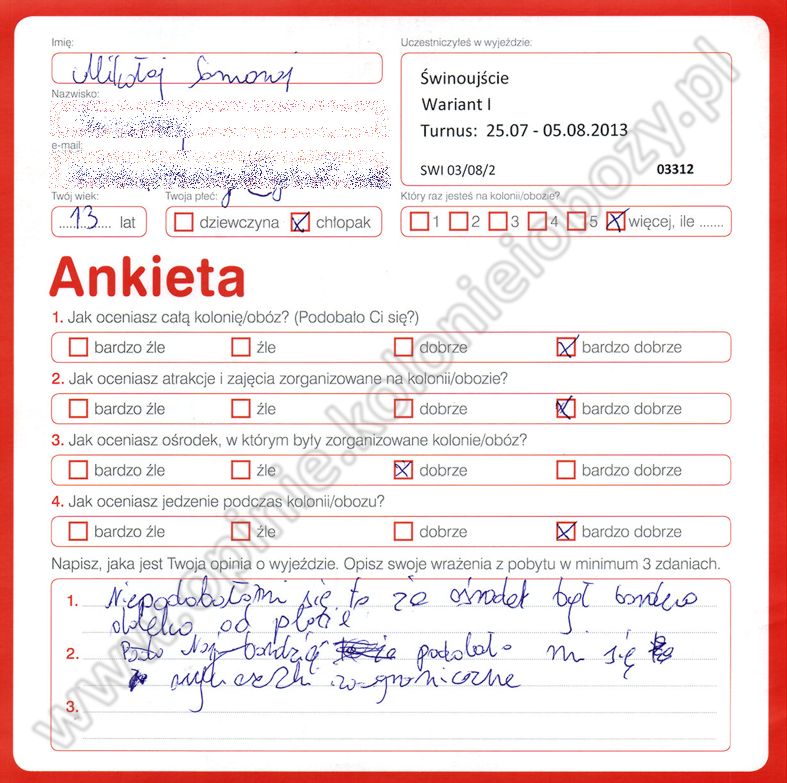 Imię:
Mikołaj
Nazwisko:
e-mail:
Twój wiek:
13 lat
Twoja płeć:
dziewczyna chłopak
Uczestniczyłeś w wyjeździe:
Świnoujście
Wariant I
Turnus: 25.07 - 05.08.2013
SWI 03/08/2 03312
Który raz jesteś na kolonii/obozie?
1 2 3 4 5 więcej, ile .......
Ankieta
1. Jak oceniasz całą kolonię/obóz? (Podobało Ci się?)
bardzo źle źle dobrze bardzo dobrze
2. Jak oceniasz atrakcje i zajęcia zorganizowane na kolonii/obozie?
bardzo źle źle dobrze bardzo dobrze
3. Jak oceniasz ośrodek, w którym były zorganizowane kolonie/obóz?
bardzo źle źle dobrze bardzo dobrze
4. Jak oceniasz jedzenie podczas kolonii/obozu?
bardzo źle źle dobrze bardzo dobrze
Napisz, jaka jest Twoja opinia o wyjeździe. Opisz swoje wrażenia z pobytu w minimum 3 zdaniach.
1. Niepodobało mi się to że ośrodek był bardzo
daleko od plaży
2. Naj bardzię podobało mi się
wycieczki zagraniczne
3.
www.opinie.kolonieiobozy.pl